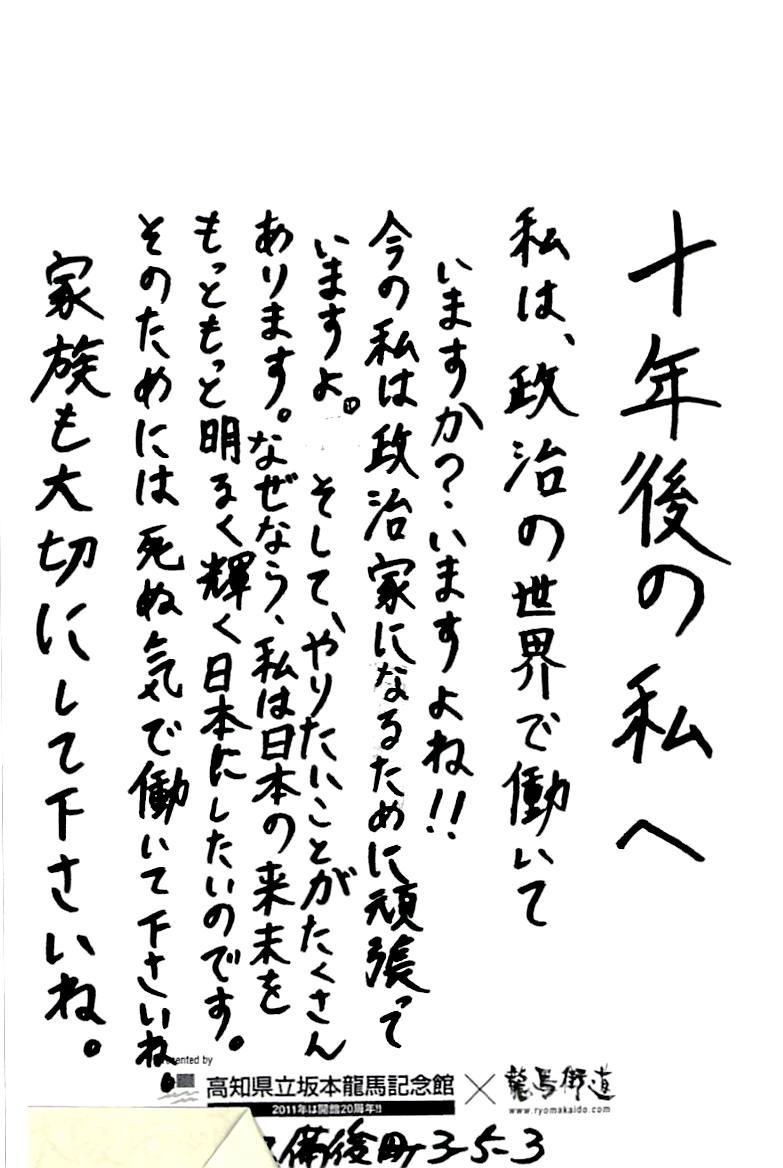 十年後の私へ
私は、政治の世界で働いて
いますか？いますよね!!
今の私は政治家になるために頑張って
いますよ。そして、やりたいことがたくさん
あります。なぜなら、私は日本の来末を
もっともっと明るく輝く日本にしたいのです。
そのためには死ぬ気で働いて下さいね。
家族も大切にして下さいね。
ented by
高知県立坂本龍馬記念館×龍馬街道
2011年は開館20周年!!
www.ryomakaido.com
備後町3-5-3